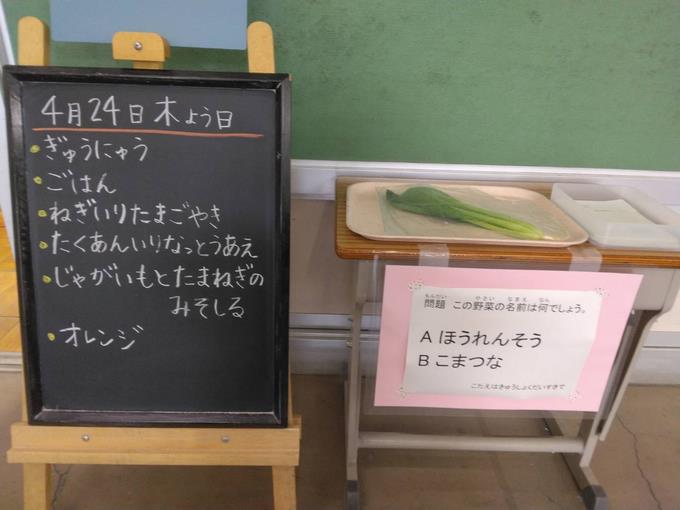 4月24日木よう日
ぎゅうにゅう
ごはん
ねぎいりたまごやき
たくあんいりなっとうあえ
じゃがいもとたまねぎの
みそしる
オレンジ
もんだい やさい なまえ なん
問題 この野菜の名前は何でしょう。
A ほうれんそう
B こまつな
こたえはきゅうしょくだいすきで